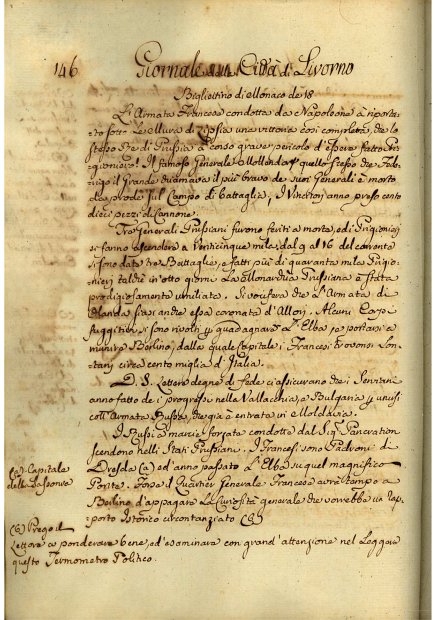 146
Giornale della Città di Livorno
Bigliettino di Monaco de 18
L'Armata Francese condotta da Napoleone à riporta-
to sotto le Mura di una vittoria così completa, che lo
stesso Rè di Prussia à corso grave pericolo d'essere fatto Pri-
gioniero! Il famoso Generale Mollendorf quello stesso che Fede-
rigo il Grande chiamava il più bravo de suoi Generali è morto
da prode sul Campo di battaglia, I Vincitori anno preso cento
dieci pezzi di Cannone.
Tre Generali Prussiani furono feriti a morte, ed i Prigionieri
si fanno ascendere a Venticinque mila; dal 9 al 16 del corrente
si sono date tre Battaglie, e fatti più di quaranta mila Prigio-
nieri talchè in otto giorni La Monarchia Prussiana è stata
prodigiosamente umiliata. Si vocifera che L'Armata di
Olanda sia anche essa coronata d'Allori. Alcuni Corpi
fuggitivi si sono rivolti p guadagnare L'Elba, e portarsi a
munire Berlino, dalla quale Capitale i Francesi trovonsi Lon-
tani circa cento miglia d'Italia.
D. S. Lettere degne di fede ci assicurano che i
anno fatto de i progressi nella Vallacchia, e Bulgaria p unirsi
coll'Armata Russa che già è entrata in Moldavia.
I Russi a marcia forzata condotte dal Sig.
scendono nelli Stati Prussiani. I Francesi sono Padroni di
Dresda (a) ed anno passato L'Elba su quel magnifico
Ponte. Forse il Quartier Generale Francese avrà tempo a
Berlino d'appagare La Curiosità generale che vorrebbe un Rap-
porto Istorico circostanziato (b)
(a) Capitale
della Sassonia
(b) Prego il
Lettore a ponderare bene, ed esaminare con grand'attenzione nel Leggere
questo Termometro Politico.